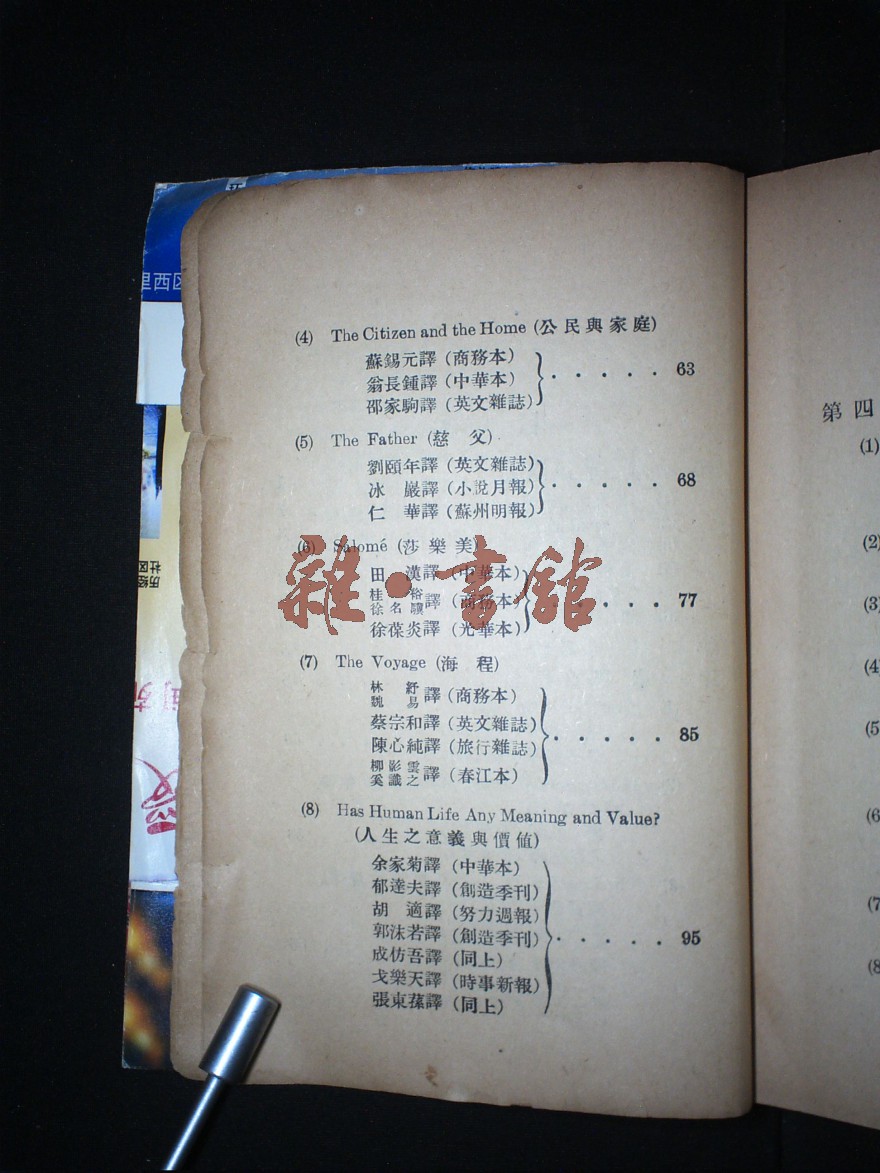 (4) The Citizen and the Home (公民與家庭)
蘇錫元譯 (商務本)
翁長鍾譯 (中華本) . . . . . 63
邵家駒譯 (英文雜誌)
(5) The Father (慈 父)
劉頤年譯 (英文雜誌)
冰 巖譯 (小說月報) . . . . . 68
仁 華譯 (蘇州明報)
(6) Salomé (莎樂美)
田 漢譯 (中華本)
桂 裕 徐名驥 譯 (商務本) . . . . . 77
徐葆炎譯 (光華本)
(7) The Voyage (海 程)
林 紓 魏 易 譯 (商務本)
蔡宗和譯 (英文雜誌)
陳心純譯 (旅行雜誌) . . . . . 85
柳影雲 奚識之 譯 (春江本)
(8) Has Human Life Any Meaning and Value?
(人生之意義與價値)
余家菊譯 (中華本)
郁達夫譯 (創造季刊)
胡 適譯 (努力週報)
郭沫若譯 (創造季刊) . . . . . 95
成仿吾譯 (同上)
戈樂天譯 (時事新報)
張東蓀譯 (同上)
雜·書館
里西区
社区
第四
(1)
(2)
(3)
(4)
(5
(6
(7
(8